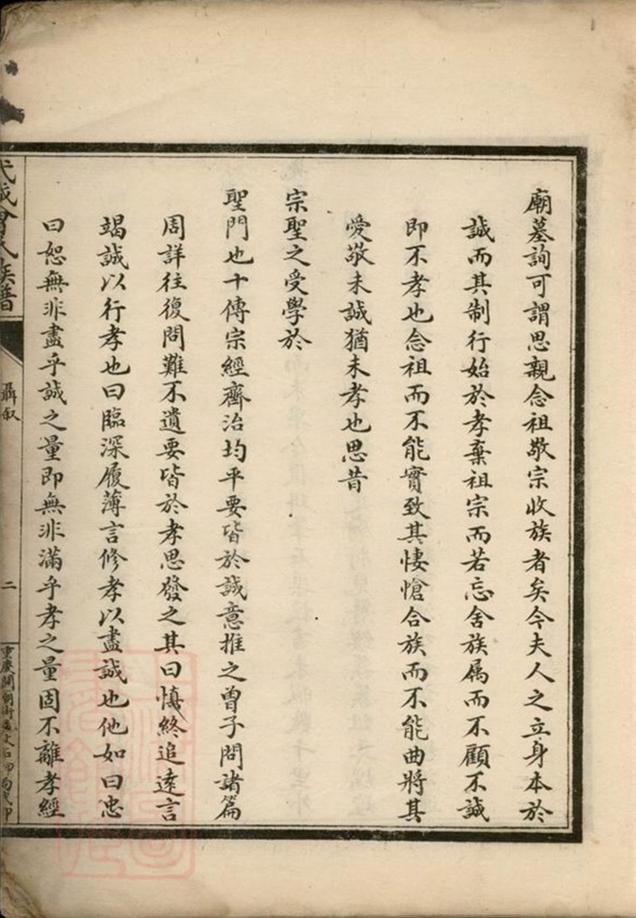 廟墓詢可謂思親念祖敬宗收族者矣今夫人之立身本於
誠而其制行始於孝棄祖宗而若忘舍族属而不顧不誠
即不孝也念祖而不能實致其悽愴合族而不能曲將其
愛敬未誠猶未孝也思昔
宗聖之受學於
聖門也十傳宗經齊治均平要皆於誠意推之曾子問諸篇
周詳往復問難不遺要皆於孝思發之其曰慎終追遠言
竭誠以行孝也曰臨深履薄言修孝以盡誠也他如曰忠
曰恕無非盡乎誠之量即無非滿乎孝之量固不離孝經
武城曾氏族譜
聶叙
二